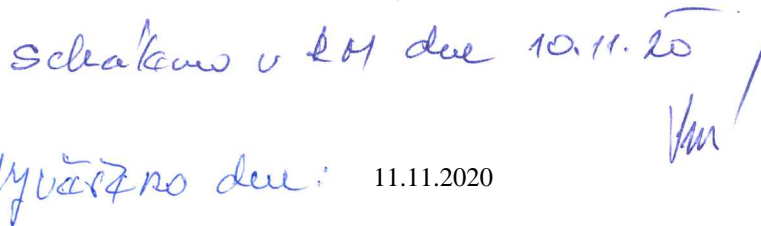 schváleno v RM dne 10.11.20
Vyvěšeno dne: 11.11.2020